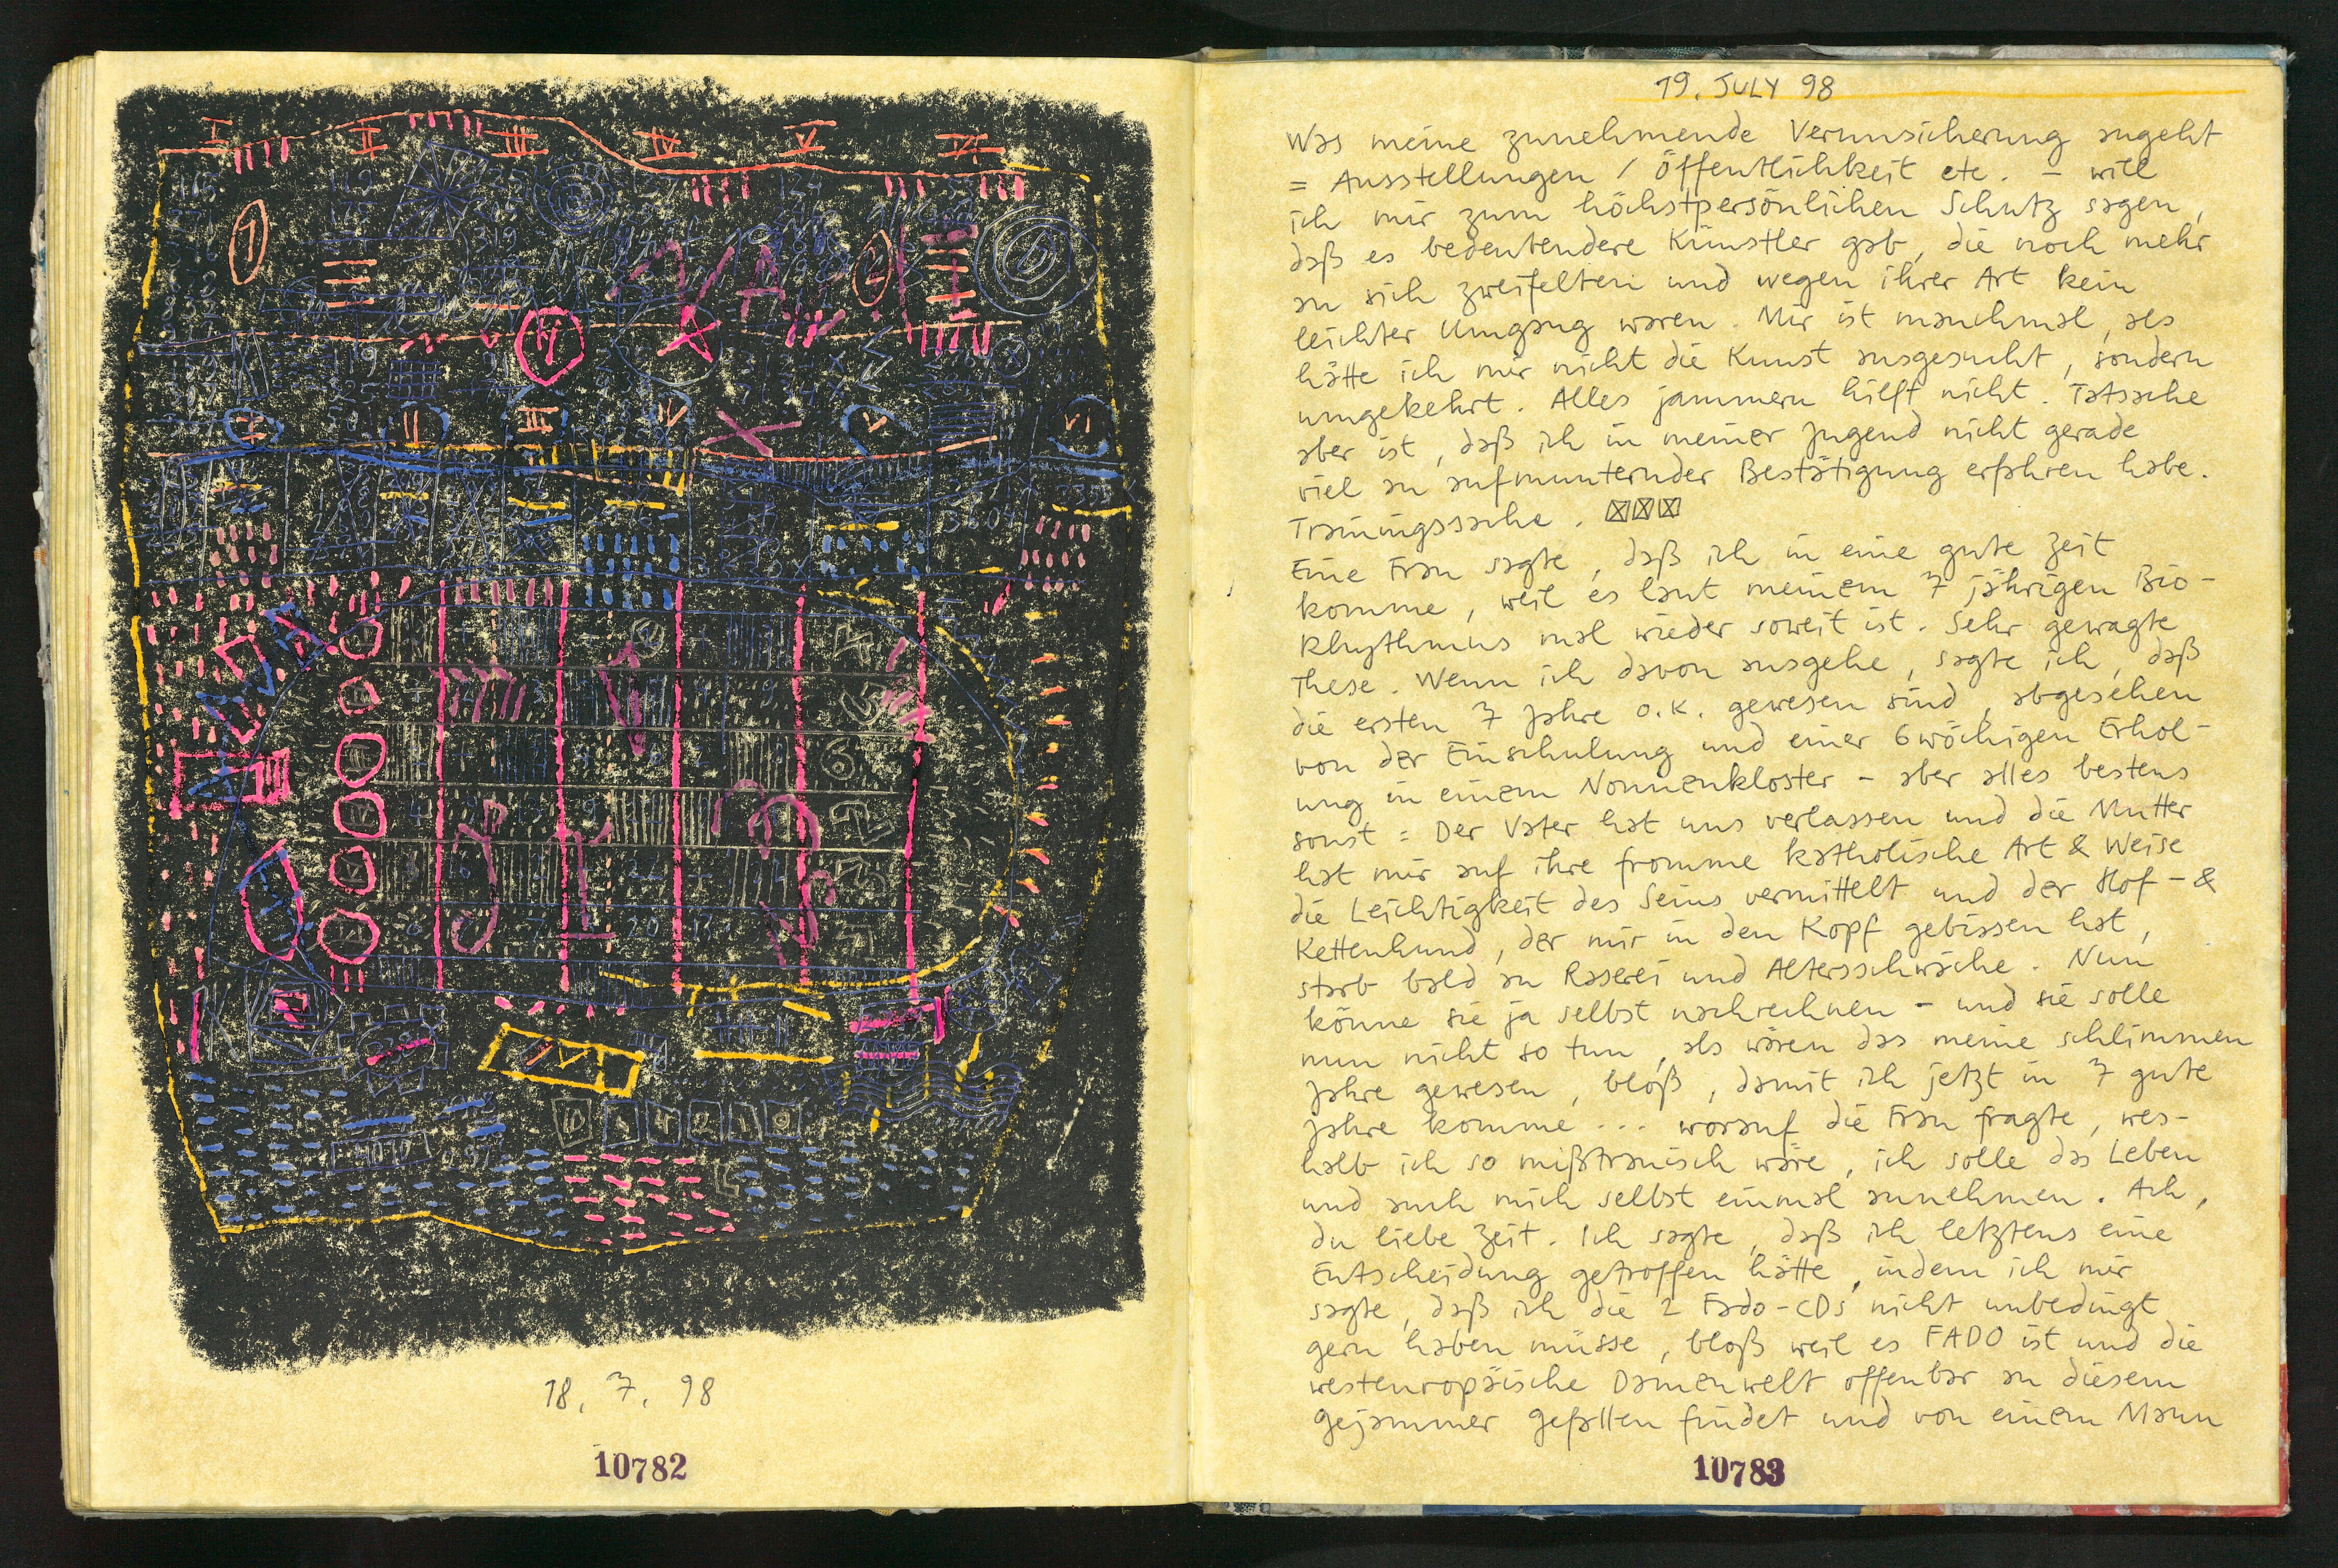 I II III IV V VI
I II III IV V VI
18. 7. 98
10782
19. JULY 98
Was meine zunehmende Verunsicherung angeht
= Ausstellungen / Öffentlichkeit etc. – will
ich mir zum höchstpersönlichen Schutz sagen,
daß es bedeutendere Künstler gab, die noch mehr
an sich zweifelten und wegen ihrer Art kein
leichter Umgang waren. Mir ist manchmal, als
hätte ich mir nicht die Kunst ausgesucht, sondern
umgekehrt. Alles jammern hilft nicht. Tatsache
aber ist, daß ich in meiner Jugend nicht gerade
viel an aufmunternder Bestätigung erfahren habe.
Trainingssache.
Eine Frau sagte, daß ich in eine gute Zeit
komme, weil es laut meinem 7 jährigen Bio-
Rhythmus mal wieder soweit ist. Sehr gewagte
These. Wenn ich davon ausgehe, sagte ich, daß
die ersten 7 Jahre o.k. gewesen sind, abgesehen
von der Einschulung und einer 6wöchigen Erhol-
ung in einem Nonnenkloster – aber alles bestens
sonst = Der Vater hat uns verlassen und die Mutter
hat mir auf ihre fromme katholische Art & Weise
die Leichtigkeit des Seins vermittelt und der Hof- &
Kettenhund, der mir in den Kopf gebissen hat,
starb bald an Raserei und Altersschwäche. Nun
könne sie ja selbst nachrechnen – und sie solle
nun nicht so tun, als wären das meine schlimmen
Jahre gewesen, bloß, damit ich jetzt in 7 gute
Jahre komme ... worauf die Frau fragte, wes-
halb ich so mißtrauisch wäre, ich solle das Leben
und auch mich selbst einmal annehmen. Ach,
du liebe Zeit. Ich sagte, daß ich letztens eine
Entscheidung getroffen hätte, indem ich mir
sagte, daß ich die 2 Fado-CDs nicht unbedingt
gern haben müsse, bloß weil es FADO ist und die
westeuropäische Damenwelt offenbar an diesem
Gejammer gefallen findet und von einem Mann
10783